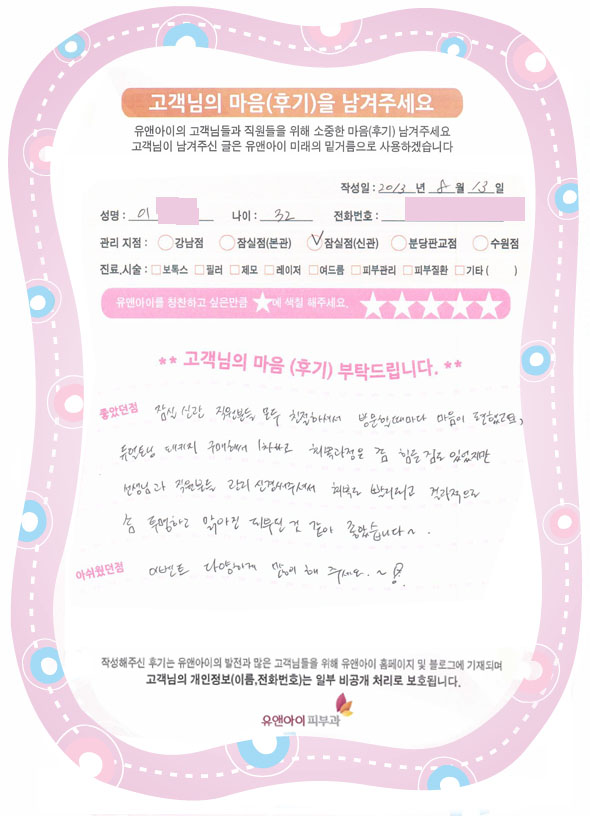 고객님의 마음(후기)을 남겨주세요
유앤아이의 고객님들과 직원들을 위해 소중한 마음(후기) 남겨주세요
고객님이 남겨주신 글은 유앤아이 미래의 밑거름으로 사용하겠습니다
작성일 : 2013 년 8 월 13 일
성명 : 이 나이 : 32 전화번호 :
관리 지점 : 강남점 잠실점(본관) 잠실점(신관) 분당판교점 수원점
진료,시술 : 보톡스 필러 제모 레이저 여드름 피부관리 피부질환 기타 ( )
유앤아이를 칭찬하고 싶은만큼 ★에 색칠 해주세요. ★★★★★
** 고객님의 마음 (후기) 부탁드립니다. **
좋았던점 잠실 신관 직원분들 모두 친절하셔서 방문할때마다 마음이 편했고요,
듀얼토닝 패키지 구매해서 1차하고 회복과정은 좀 힘든 점도 있었지만
선생님과 직원분들 관리 신경써주셔서 회복도 빨라지고 결과적으로
좀 투명하고 맑아진 피부인 것 같아 좋았습니다~.
아쉬웠던점 이벤트 다양하게 많이 해 주세요.~
작성해주신 후기는 유앤아이의 발전과 많은 고객님들을 위해 유앤아이 홈페이지 및 블로그에 기재되며
고객님의 개인정보(이름,전화번호)는 일부 비공개 처리로 보호됩니다.
유앤아이피부과